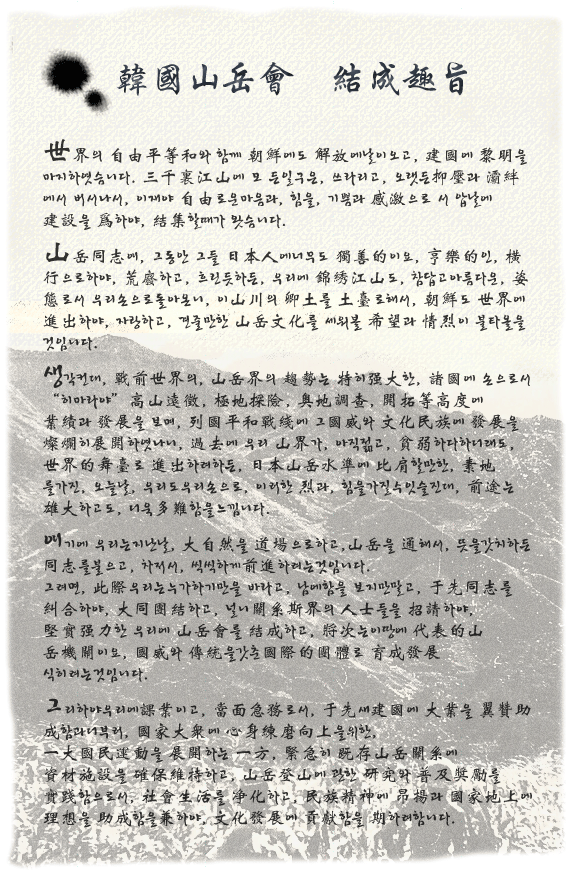 韓國山岳會 結成趣旨
世界의 自由平等和와 함께 朝鮮에도 解放에날이오고, 建國에 黎明을
마지하엿습니다. 三千裏江山에 모든일구운, 쓰라리고, 오랫든抑壓과 灞絆
에서 버서나서, 이제야 自由로운마음과, 힘을, 기쁨과 感激으로 서 압날에
建設을 爲하야, 結集할때가 왓습니다.
山岳同志에, 그동안 그들 日本人에너무도 獨善的이요, 亨樂的인, 橫
行으로하야, 荒廢하고, 흐린듯하든, 우리에 錦绣江山도, 참답고아름다운, 姿
態로서 우리손으로돌아온니, 이山川의 鄕土를 土臺로해서, 朝鮮도 世界에
進出하야, 자랑하고, 견줄만한 山岳文化를 세위볼 希望과 情烈이 불타올을
것임니다.
생각컨대, 戰前世界의, 山岳界의 趨勢는 特히强大한, 諸國에 손으로서
“히마라야” 高山遠徵, 極地探險, 奧地調查, 開拓等高度에
業績과 發展을 보며, 列國平和戰綫에 그國威와 文化民族에 發展을
燦爛히展開하엿나니, 過去에 우리 山界가, 아직젊고, 貧弱하다하더래도,
世界的舞臺로 進出하려하든, 日本山岳水準에 比肩할만한, 素地
를가진, 오늘날, 우리도우리손으로, 이러한 烈과, 힘을가질수잇슬진대, 前途는
雄大하고도, 더욱多難함을느낌니다.
에기에 우리는지난날, 大自然을 道場으로하고, 山岳을 通해서, 뜻을갓치하든
同志를불으고, 차저서, 씩씩하게前進하려는것입니다.
그러면, 此際우리는누가하기만을 바라고, 남에함을 보지만말고, 于先同志를
糾合하야, 大同團結하고, 널니關系斯界의 人士들을 招請하야,
堅實强力한 우리에 山岳會를 結成하고, 將次는이땅에 代表的山
岳機關이요, 國威와 傳統을갓춘國際的團體로 育成發展
식히려는것입니다.
그리하야우리에課業이고, 當面急務로서, 于先새建國에 大業을 翼贊助
成함과더부러, 國家大衆에 心身練磨向上을위한,
一大國民運動을 展開하는 一方, 緊急히 既存山岳關系에
資材施設을 確保維持하고, 山岳登山에 관한 研究와 普及奬勵를
實踐함으로서, 社會生活를 淨化하고, 民族精神에 昂揚과 國家地上에
理想을 助成함을兼하야, 文化發展에 貢献함을 期하려합니다.